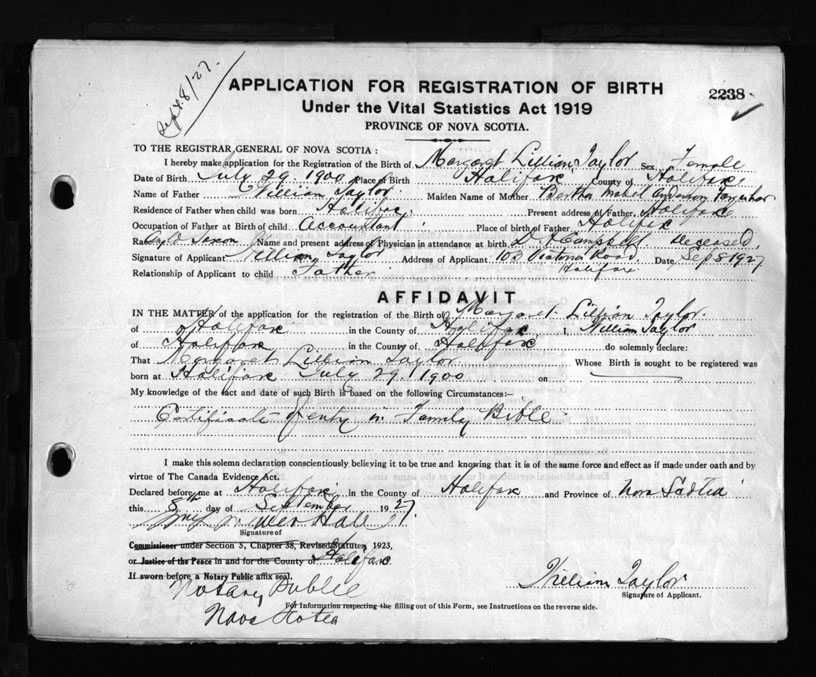 Sept. 8/27.
APPLICATION FOR REGISTRATION OF BIRTH
2238
Under the Vital Statistics Act 1919
PROVINCE OF NOVA SCOTIA.
TO THE REGISTRAR GENERAL OF NOVA SCOTIA:
I hereby make application for the Registration of the Birth of Margaret Lillian Taylor Sex Female
Date of Birth July 29. 1900 Place of Birth Halifax County of Halifax
Name of Father William Taylor. Maiden Name of Mother Bertha Mabel Anderson
Residence of Father when child was born Halifax. Present address of Father, Halifax
Occupation of Father at Birth of child Accountant Place of birth of Father Halifax
Race Anglo Saxon Name and present address of Physician in attendance at birth Dr Campbell Deceased.
Signature of Applicant William Taylor Address of Applicant 103 Victoria Road. Halifax Date Sep 8 1927
Relationship of Applicant to child Father
AFFIDAVIT
IN THE MATTER of the application for the registration of the Birth of Margaret Lillian Taylor.
of Halifax in the County of Halifax I, William Taylor
of Halifax in the County of Halifax do solemnly declare:
That Margaret Lillian Taylor Whose Birth is sought to be registered was
born at Halifax July 29. 1900 on
My knowledge of the fact and date of such Birth is based on the following Circumstances:—
Certificate of entry in Family Bible
I make this solemn declaration conscientiously believing it to be true and knowing that it is of the same force and effect as if made under oath and by
virtue of The Canada Evidence Act.
Declared before me at Halifax in the County of Halifax and Province of Nova Scotia
this 8th day of September 1927.
Hall
Signature of
Commissioner under Section 3, Chapter 38, Revised Statutes, 1923,
or Justice of the Peace in and for the County of Halifax
If sworn before a Notary Public affix seal.
Notary Public
Nova Scotia
William Taylor
Signature of Applicant.
For Information respecting the filling out of this Form, see Instructions on the reverse side.